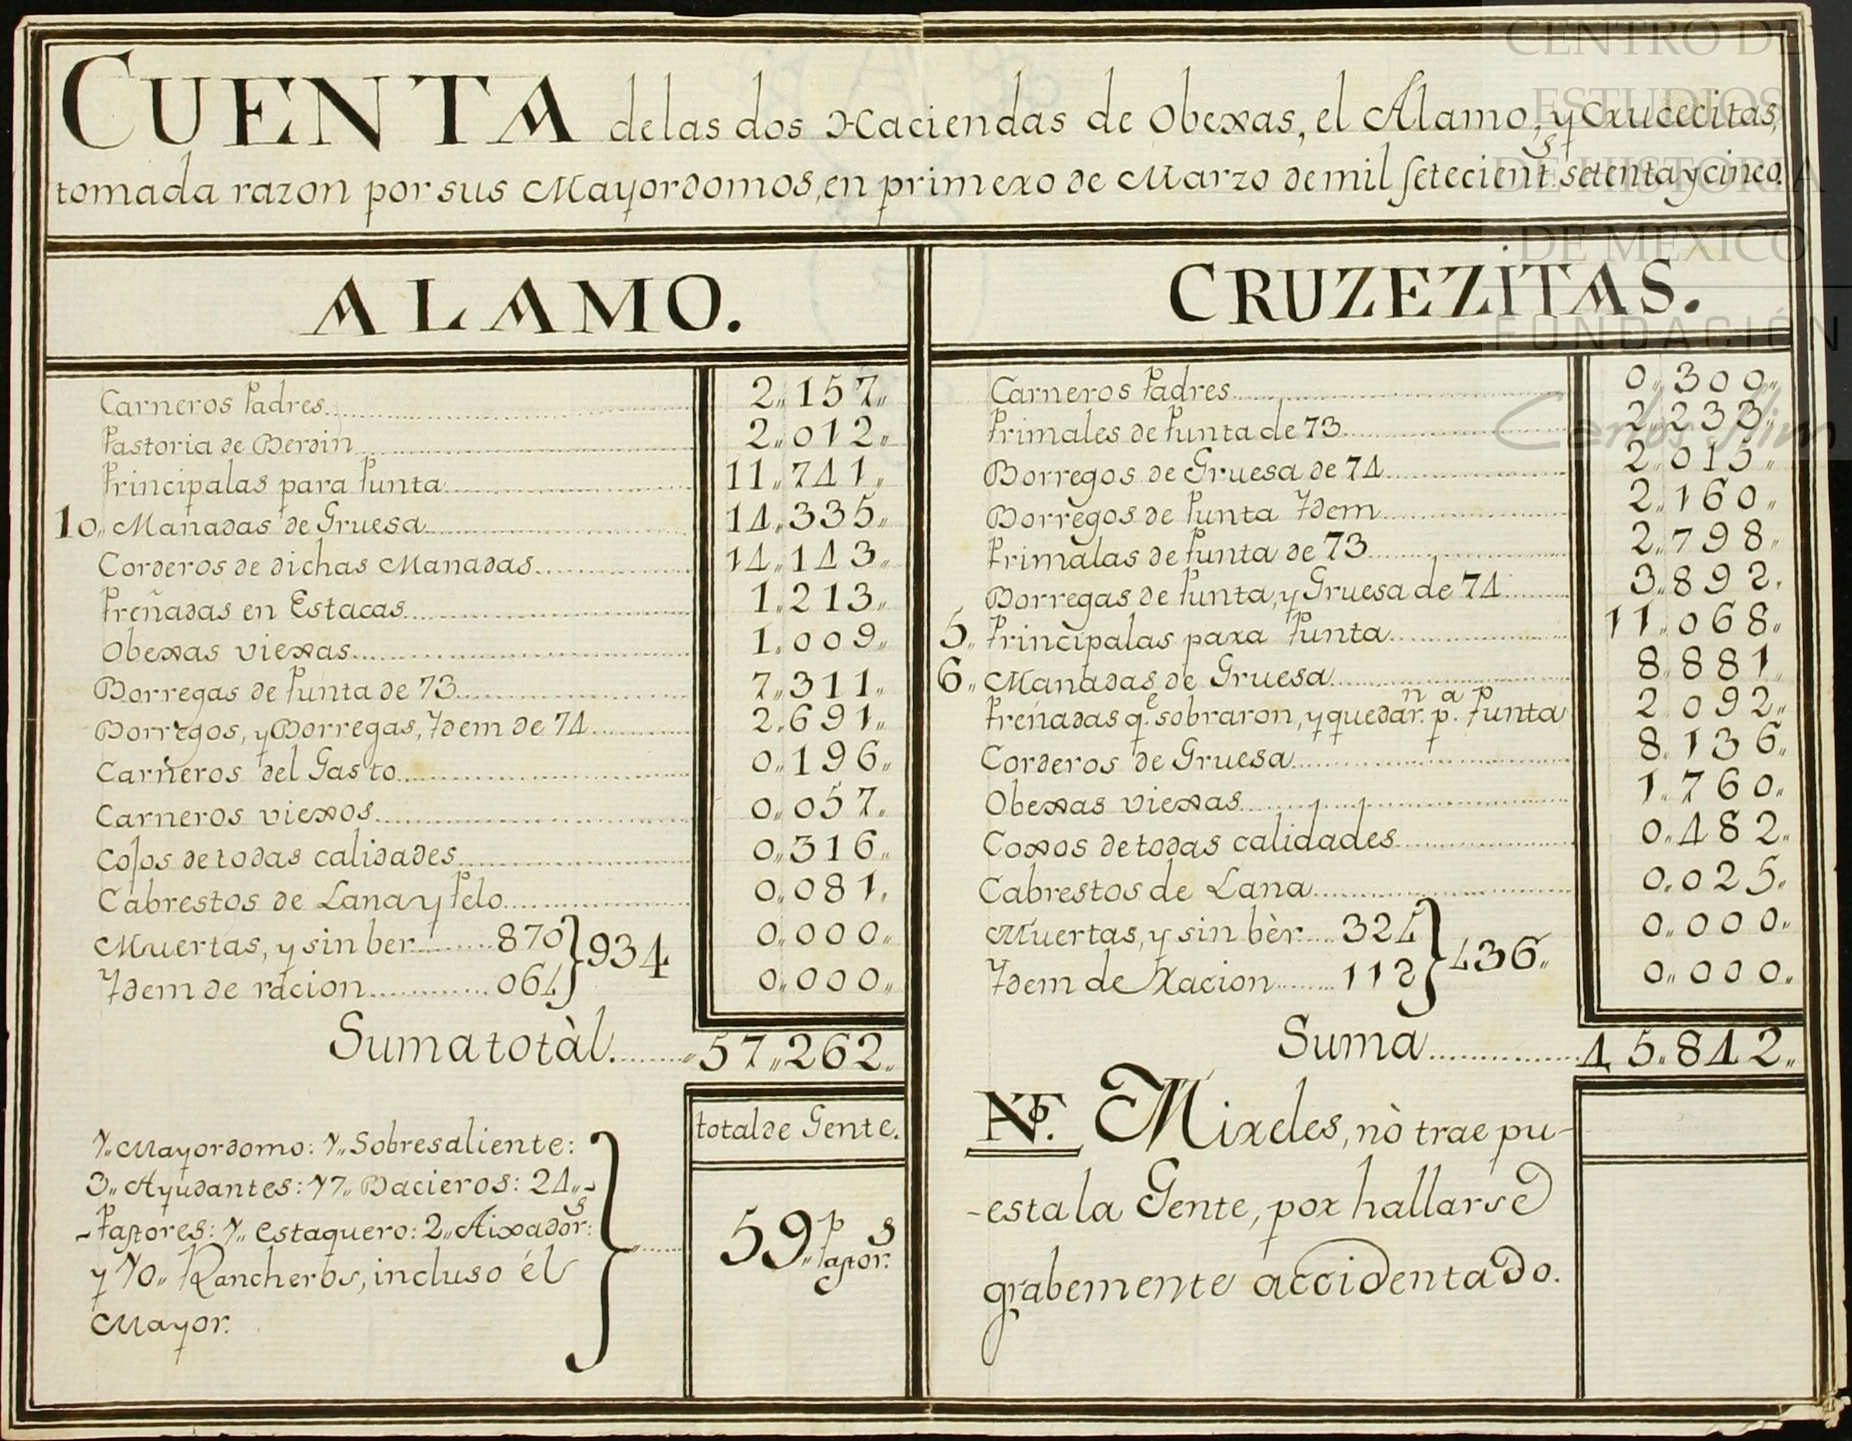 CUENTA delas dos Haciendas de Obexas, el Alamo, y Crucecitas,
tomada razon por sus Mayordomos, en primero de Marzo de mil setecient.s setenta y cinco.
ALAMO.
Carneros Padres 2,,157,,
Pastoria de Berdin 2,,012,,
Principalas para Punta 11,,741,,
10,, Manadas de Gruesa 14,,335,,
Corderos de dichas Manadas 14,,143,,
Preñadas en Estacas 1,,213,,
Obexas viexas 1,,009,,
Borregas de Punta de 73 7,,311,,
Borregos, y Borregas, Ydem de 74 2,,691,,
Carneros del Gasto 0,,196,,
Carneros viexos 0,,057,,
Cojos de todas calidades 0,,316,,
Cabrestos de Lana y Pelo 0,,081,,
Muertas, y sin ber 870 } 934 0,,000,,
Ydem de racion 064 0,,000,,
Suma totàl 57,,262,,
1,, Mayordomo: 1,, Sobresaliente:
3,, Ayudantes: 17,, Bacieros: 24,,-
-Pastores: 1,, estaquero: 2,, Aixador.s:
y 10,, Rancheros, incluso él
Mayor.
total de Gente.
59,, p Pastor.s
CRUZEZITAS.
Carneros Padres 0,,300,,
Primales de Punta de 73 2,,233,,
Borregos de Gruesa de 74 2,,015,,
Borregos de Punta Ydem 2,,160,,
Primalas de Punta de 73 2,,798,,
Borregas de Punta, y Gruesa de 74 3,,892,,
5,, Principalas para Punta 11,,068,,
6,, Manadas de Gruesa 8,,881,,
Preñadas q.e sobraron, y quedar.n p.a Punta 2,,092,,
Corderos de Gruesa 8,,136,,
Obexas viexas 1,,760,,
Coxos de todas calidades 0,,482,,
Cabrestos de Lana 0,,025,,
Muertas, y sin bèr 324 } 436,, 0,,000,,
Ydem de Racion 112 0,,000,,
Suma 45,,842,,
NT. Mireles, nò trae pu-
-esta la Gente, por hallarse
grabemente accidentado.
CENTRO DE
ESTUDIOS
DE HISTORIA
DE MÉXICO
FUNDACIÓN
Carlos Slim